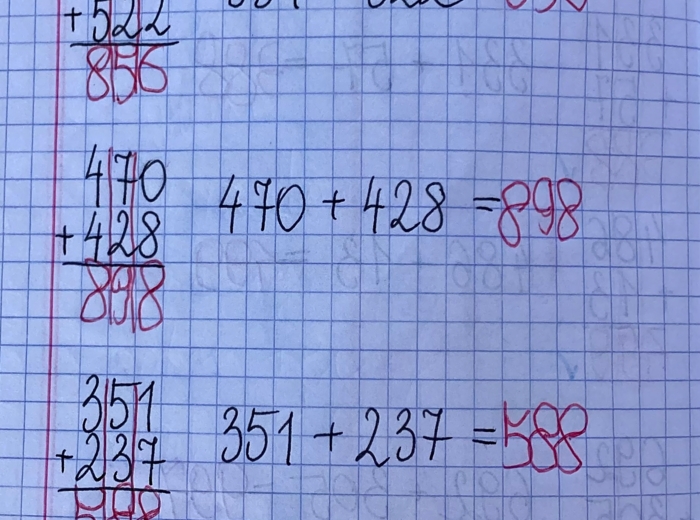 +522
856
470
+428
898
470 + 428 = 898
351
+237
588
351 + 237 = 588